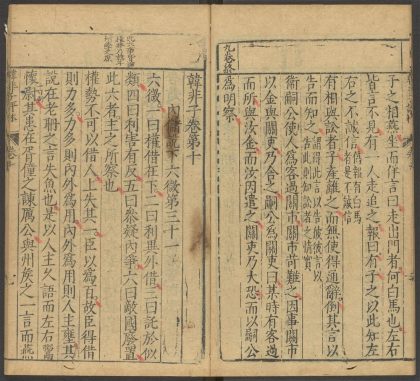 子之相燕坐而佯言曰走出門者何白馬也左右
皆言不見有一人走追之報曰有子之以此知左
右之不誠信
偽報有白馬
者是不誠信
有相與訟者子產離之而無使得通辭倒其言以
告而知之
謂得此言以告彼彼言以
告此則知訟者之情實
衛嗣公使人為客過關市關市苛難之因事關市
以金與關吏乃舍之嗣公為關吏曰某時有客過
而所與汝金而汝因遣之關吏乃大恐而以嗣公
為明察
九卷終
韓非子卷第十
內儲說下六微第三十一
六微一曰權借在下二曰利異外借三曰託於似
類四曰利害有反五曰參疑內爭六曰敵國廢置
此六者主之所察也
權勢不可以借人上失其一臣以為百故臣得借
則力多力多則內外為用內外為用則人主壅其
說在老聃之言失魚也是以人主久語而左右鬻
懷刷其患在胥僮之諫厲公與州侯之一言而燕